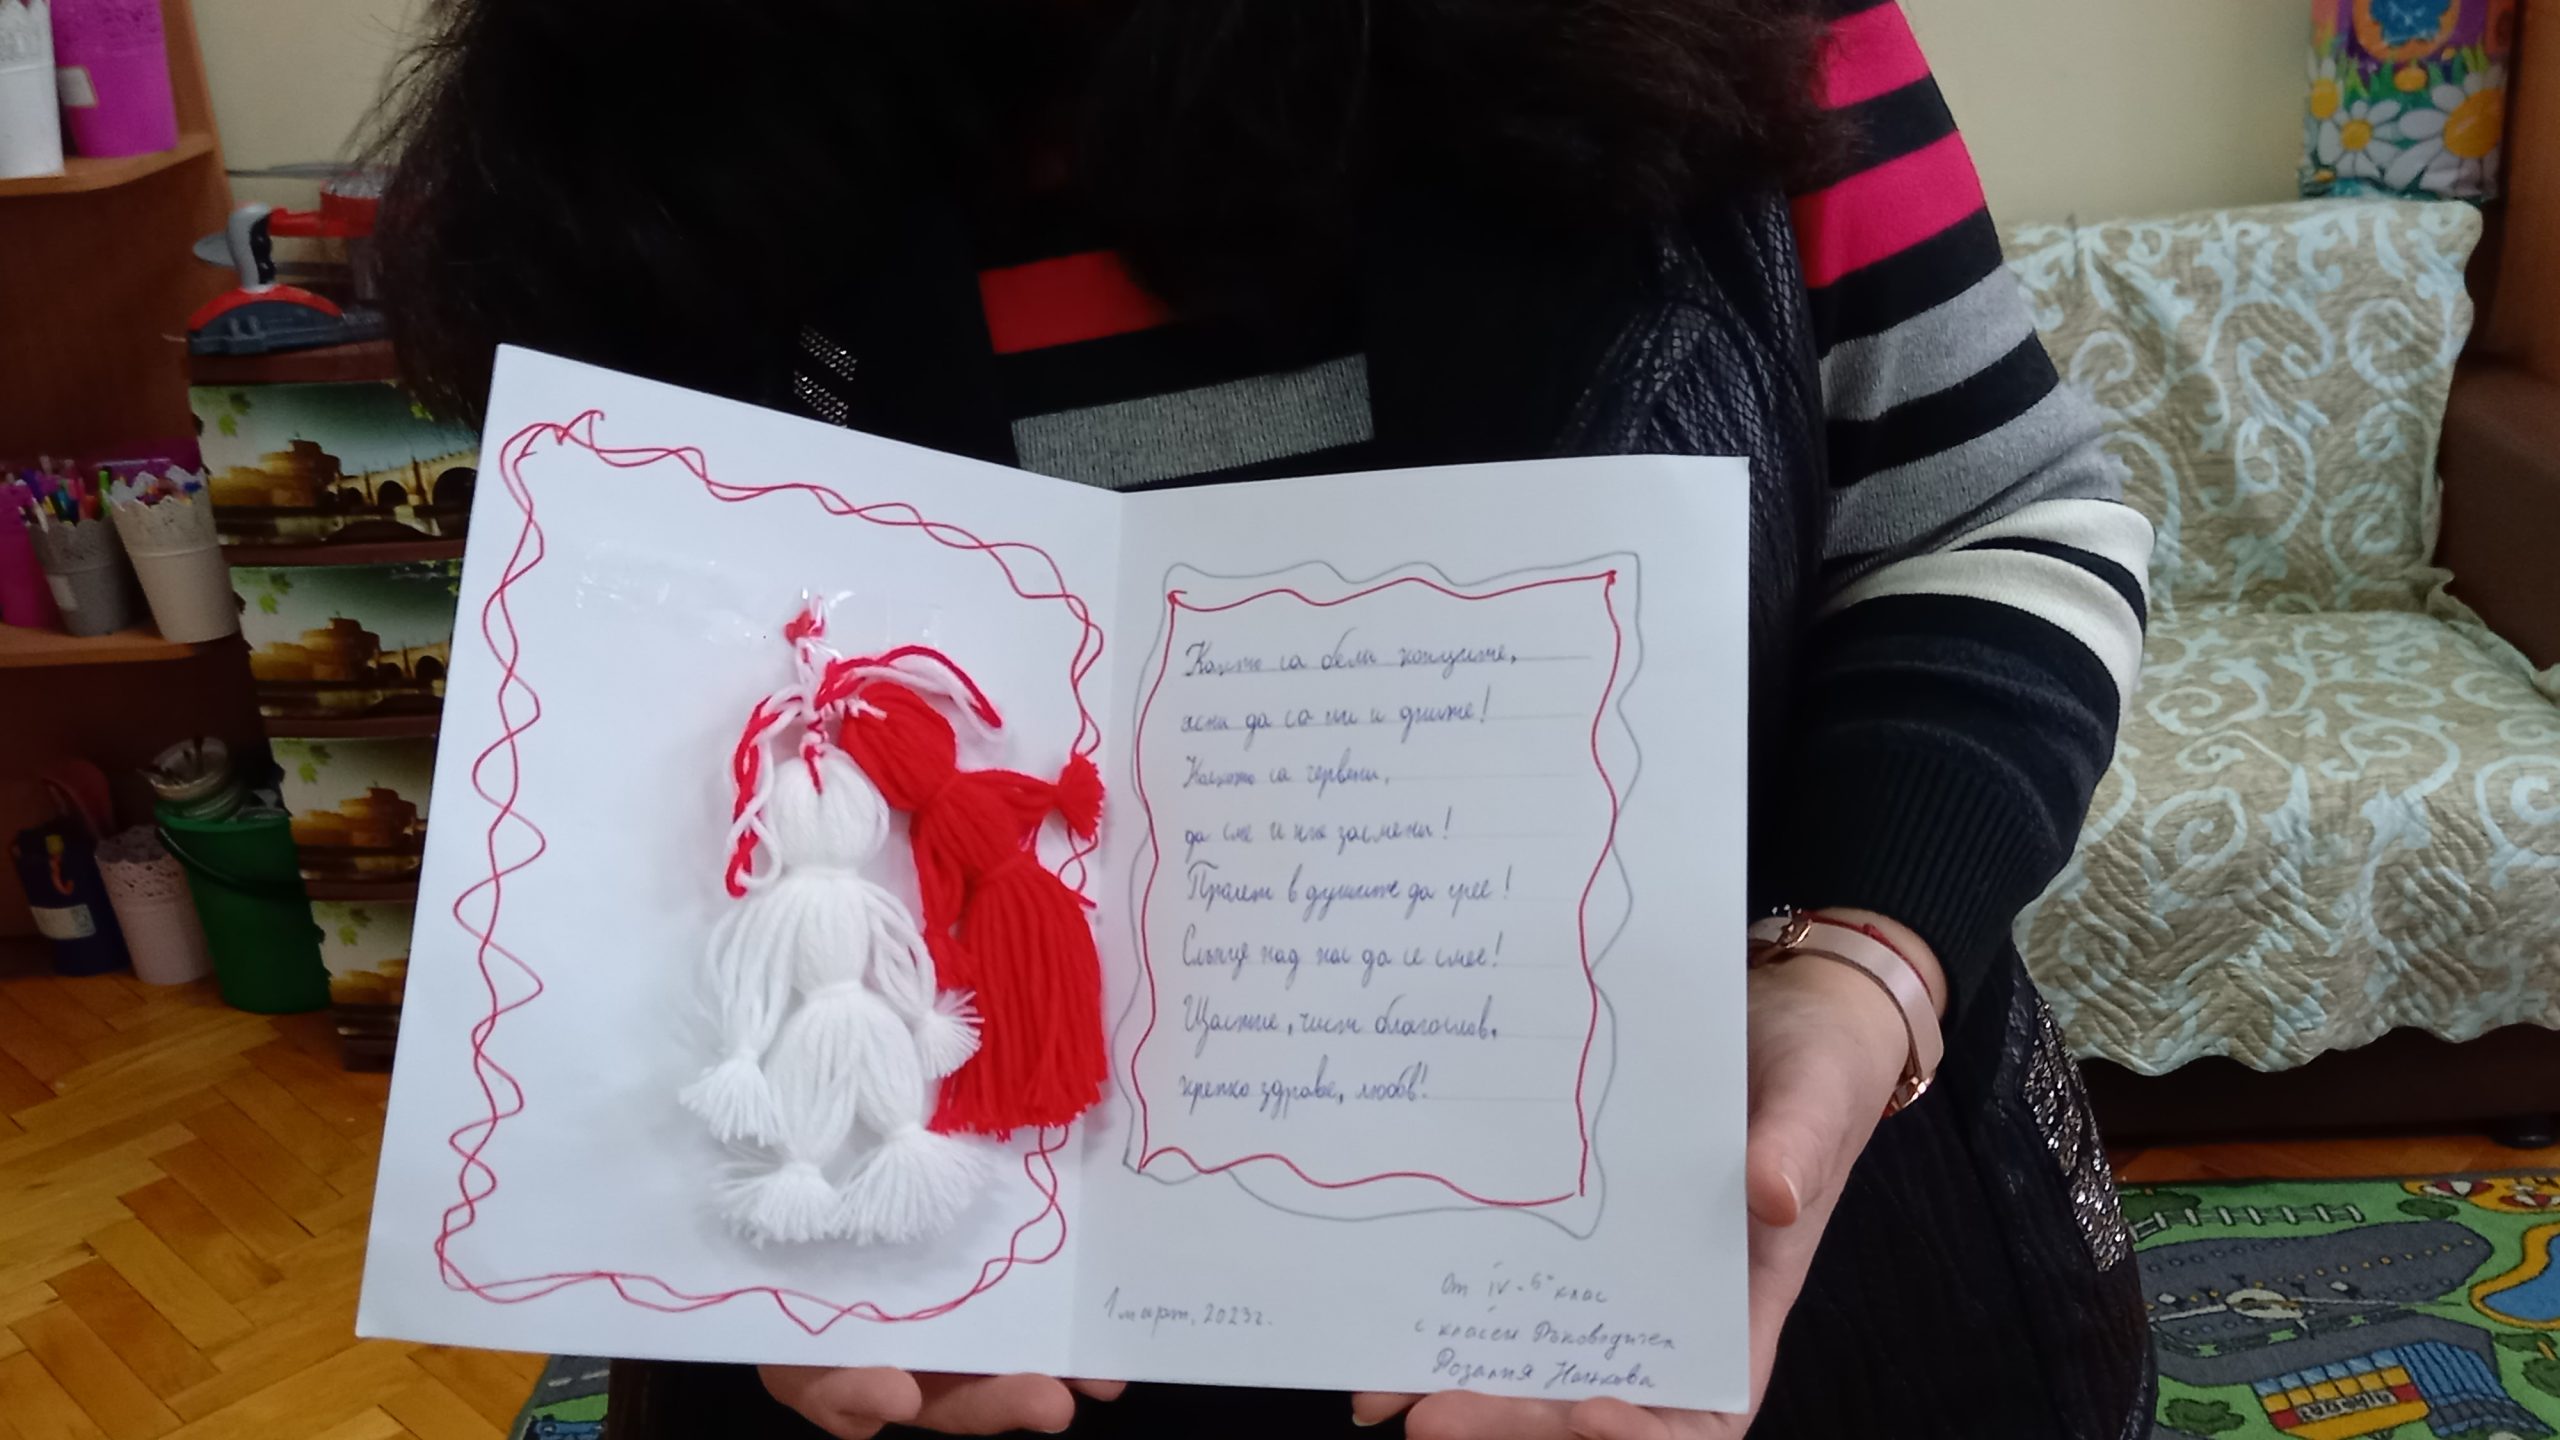 Както са бели конците,
ясни да са ни и дните!
Както са червени,
да сме и ние засмени!
Пролет в душите да грее!
Слънце над нас да се смее!
Щастие, чист благослов,
крепко здраве, любов!
1 март, 2023г.
От IV-б клас
с класен Ръководител
Розалия